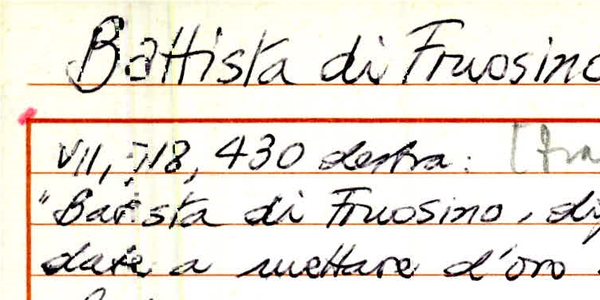 Battista di Fruosino
VII, 718, 430 destra:
"Batista di Fruosino,
date a mettare d'oro